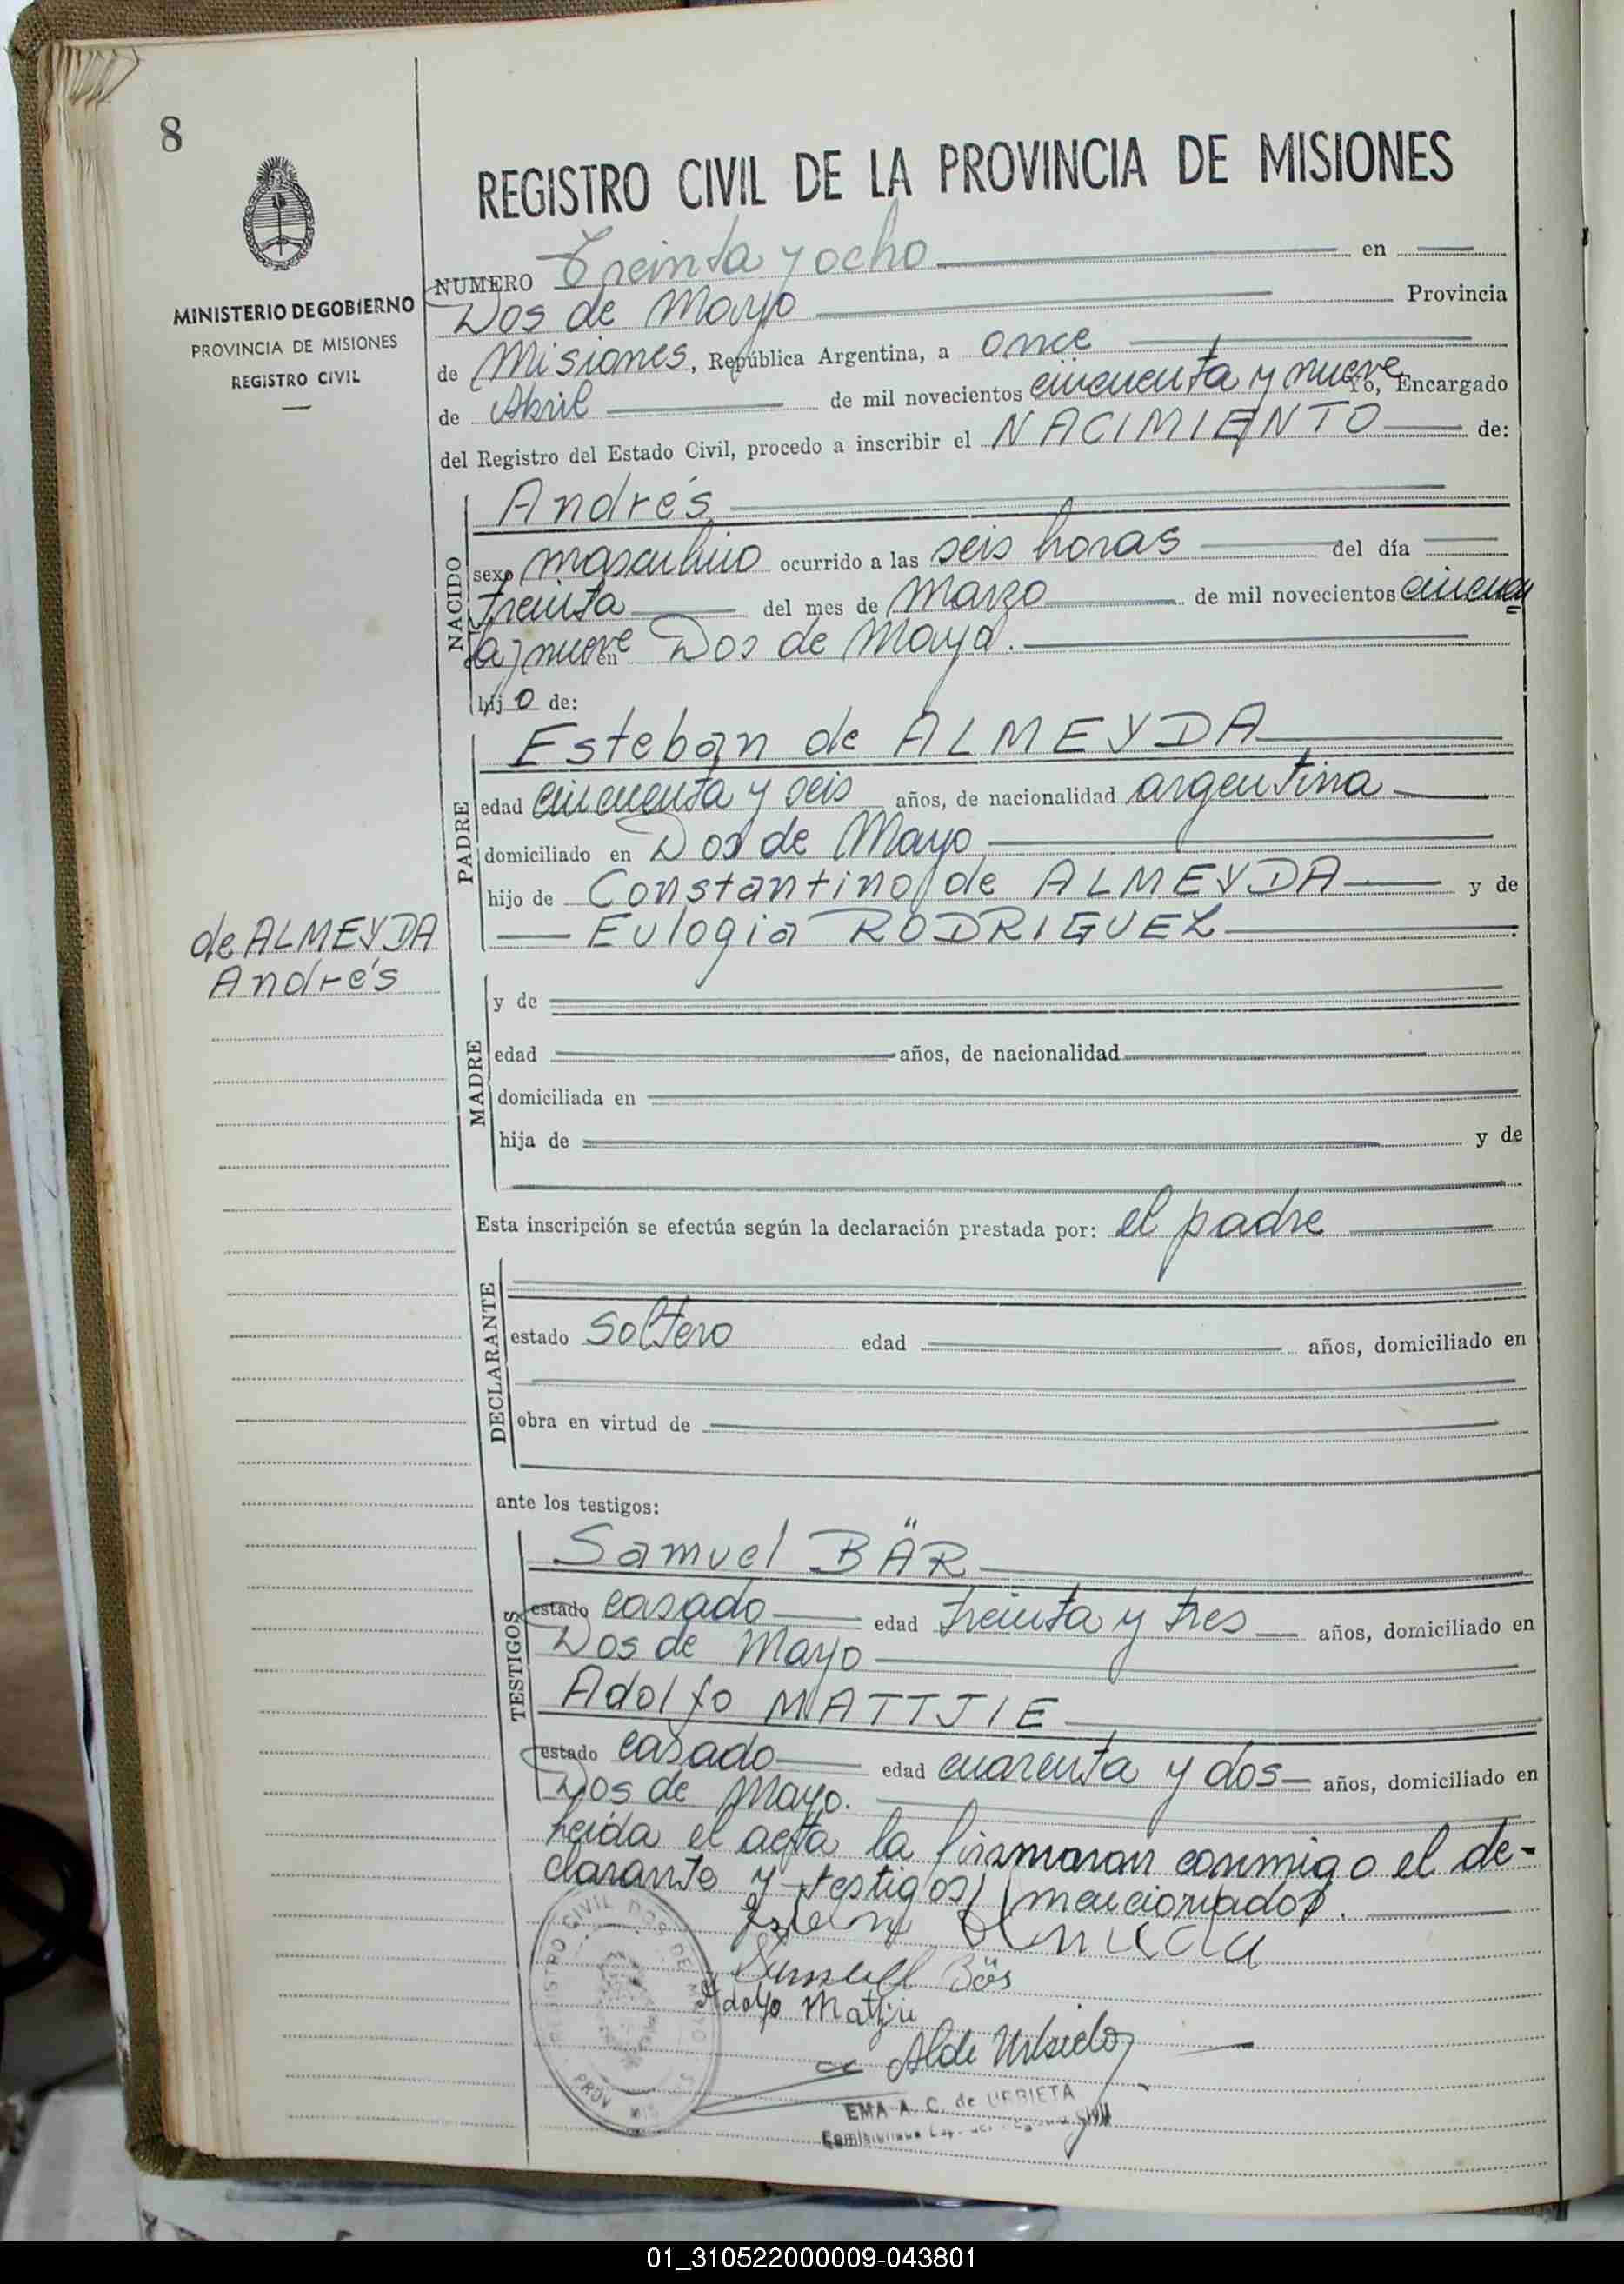 8
MINISTERIO DE GOBIERNO
PROVINCIA DE MISIONES
REGISTRO CIVIL
REGISTRO CIVIL DE LA PROVINCIA DE MISIONES
NUMERO Treinta y ocho en
Dos de Mayo Provincia
de Misiones, República Argentina, a once
de Abril de mil novecientos cincuenta y nueve, Encargado
del Registro del Estado Civil, procedo a inscribir el NACIMIENTO de:
NACIDO
Andrés
sexo masculino ocurrido a las seis horas del día
treinta del mes de Marzo de mil novecientos cincuen
ta y nueve en Dos de Mayo.
hijo de:
PADRE
Esteban de ALMEYDA
edad cincuenta y seis años, de nacionalidad argentina
domiciliado en Dos de Mayo
hijo de Constantino de ALMEYDA y de
Eulogia RODRIGUEZ
de ALMEYDA
Andrés
MADRE
y de
edad años, de nacionalidad
domiciliada en
hija de y de
Esta inscripción se efectúa según la declaración prestada por: el padre
DECLARANTE
estado soltero edad años, domiciliado en
obra en virtud de
ante los testigos:
TESTIGOS
Samuel BÄR
estado casado edad treinta y tres años, domiciliado en
Dos de Mayo
Adolfo MATTJIE
estado casado edad cuarenta y dos años, domiciliado en
Dos de Mayo.
Leida el acta la firmaron conmigo el de-
clarante y testigos mencionados.
Samuel Bär
Adolfo Matjie
EMA A. C. de URBIETA
REGISTRO CIVIL DOS DE MAYO
PROV. MIS
01_310522000009-043801